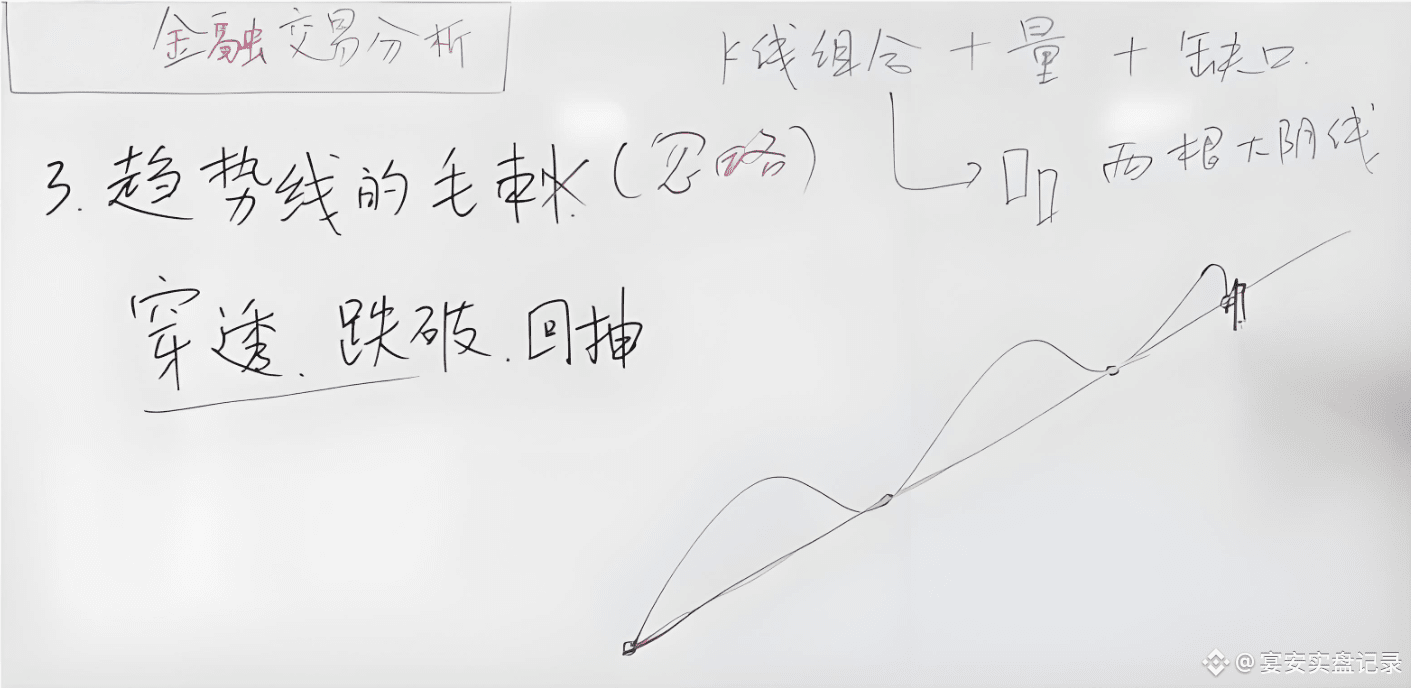 金融交易分析
K线组合 + 量 + 缺口.
两根大阴线
3. 趋势线的毛刺(忽略)
穿透、跌破、回抽
@宴安实盘记录